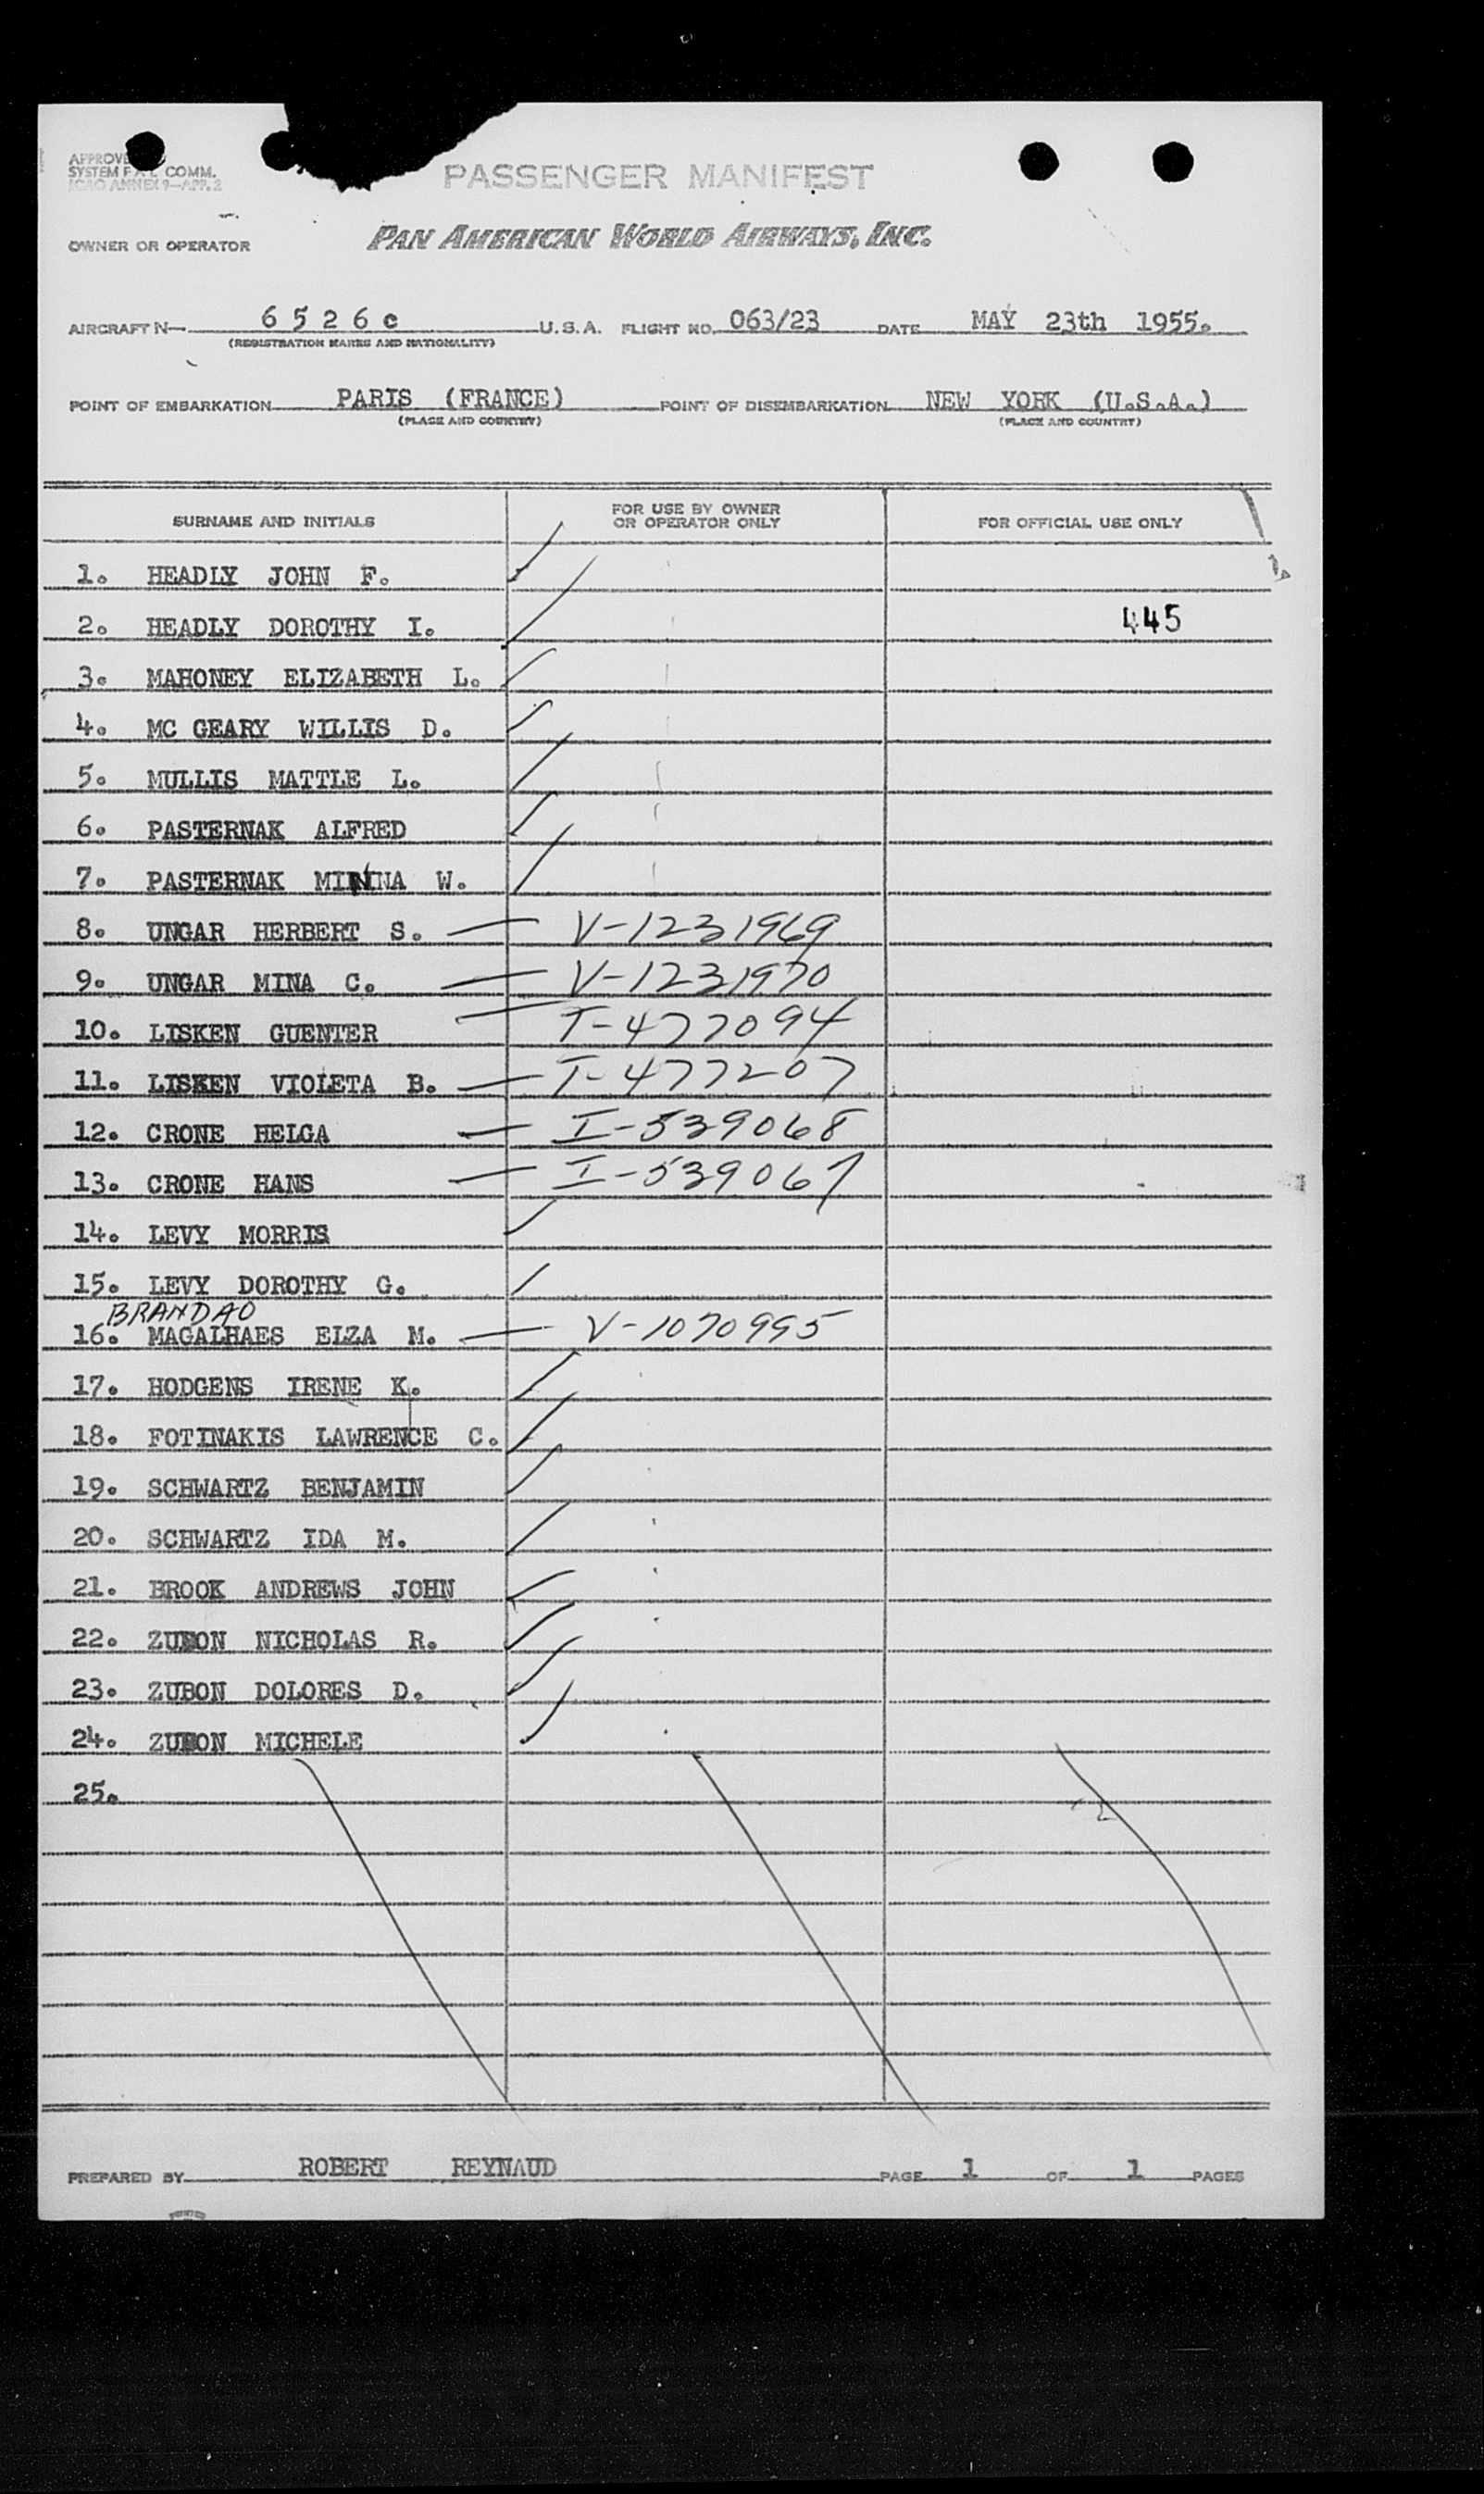 PASSENGER MANIFEST
SYSTEM COMM.
ICAO ANNEX 9—APP. 2
OWNER OR OPERATOR PAN AMERICAN WORLD AIRWAYS, INC.
AIRCRAFT N— 6 5 2 6 c U.S.A. FLIGHT NO. 063/23 DATE MAY 23th 1955.
(REGISTRATION MARKS AND NATIONALITY)
POINT OF EMBARKATION PARIS (FRANCE) POINT OF DISEMBARKATION NEW YORK (U.S.A.)
(PLACE AND COUNTRY) (PLACE AND COUNTRY)
SURNAME AND INITIALS FOR USE BY OWNER OR OPERATOR ONLY FOR OFFICIAL USE ONLY
1. HEADLY JOHN F.
2. HEADLY DOROTHY I. 445
3. MAHONEY ELIZABETH L.
4. MC GEARY WILLIS D.
5. MULLIS MATTLE L.
6. PASTERNAK ALFRED
7. PASTERNAK MINNA W.
8. UNGAR HERBERT S. — V-1231969
9. UNGAR MINA C. — V-1231970
10. LISKEN GUENTER — I-477094
11. LISKEN VIOLETA B. — I-477207
12. CRONE HELGA — I-539068
13. CRONE HANS — I-539067
14. LEVY MORRIS
15. LEVY DOROTHY G.
BRANDAO
16. MAGALHAES ELZA M. — V-1070995
17. HODGENS IRENE K.
18. FOTINAKIS LAWRENCE C.
19. SCHWARTZ BENJAMIN
20. SCHWARTZ IDA M.
21. BROOK ANDREWS JOHN
22. ZUBON NICHOLAS R.
23. ZUBON DOLORES D.
24. ZUBON MICHELE
25.
PREPARED BY ROBERT REYNAUD PAGE 1 OF 1 PAGES